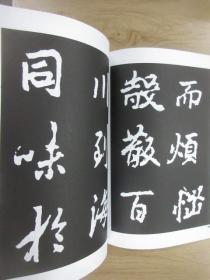 而煩惱
殼散百
川到海
同味於